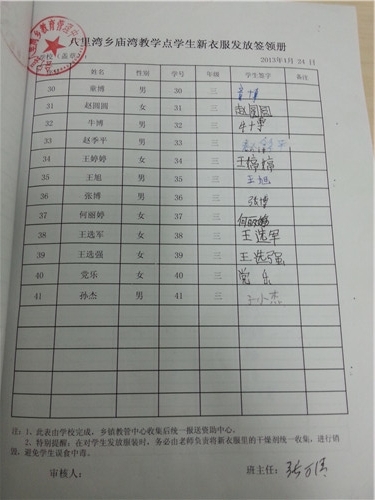 八里湾乡庙湾教学点学生新衣服发放签领册
学校（盖章） 2013年1月 24 日
姓名 性别 学号 年级 学生签字 备注
30 童博 男 30 三 童博
31 赵圆圆 女 31 三 赵圆圆
32 牛博 男 32 三 牛博
33 赵季平 男 33 三
34 王婷婷 女 34 三 王婷婷
35 王旭 男 35 三 王旭
36 张博 男 36 三 张博
37 何丽婷 女 37 三 何丽婷
38 王选军 女 38 三 王选军
39 王选强 女 39 三 王选强
40 党乐 女 40 三 党乐
41 孙杰 男 41 三 孙小杰
注：1、此表由学校完成，乡镇教管中心收集后统一报送资助中心。
2、特别提醒：在对学生发放服装时，务必由老师负责将新衣服里的干燥剂统一收集，进行销
毁，避免学生误食中毒。
审核人： 班主任：